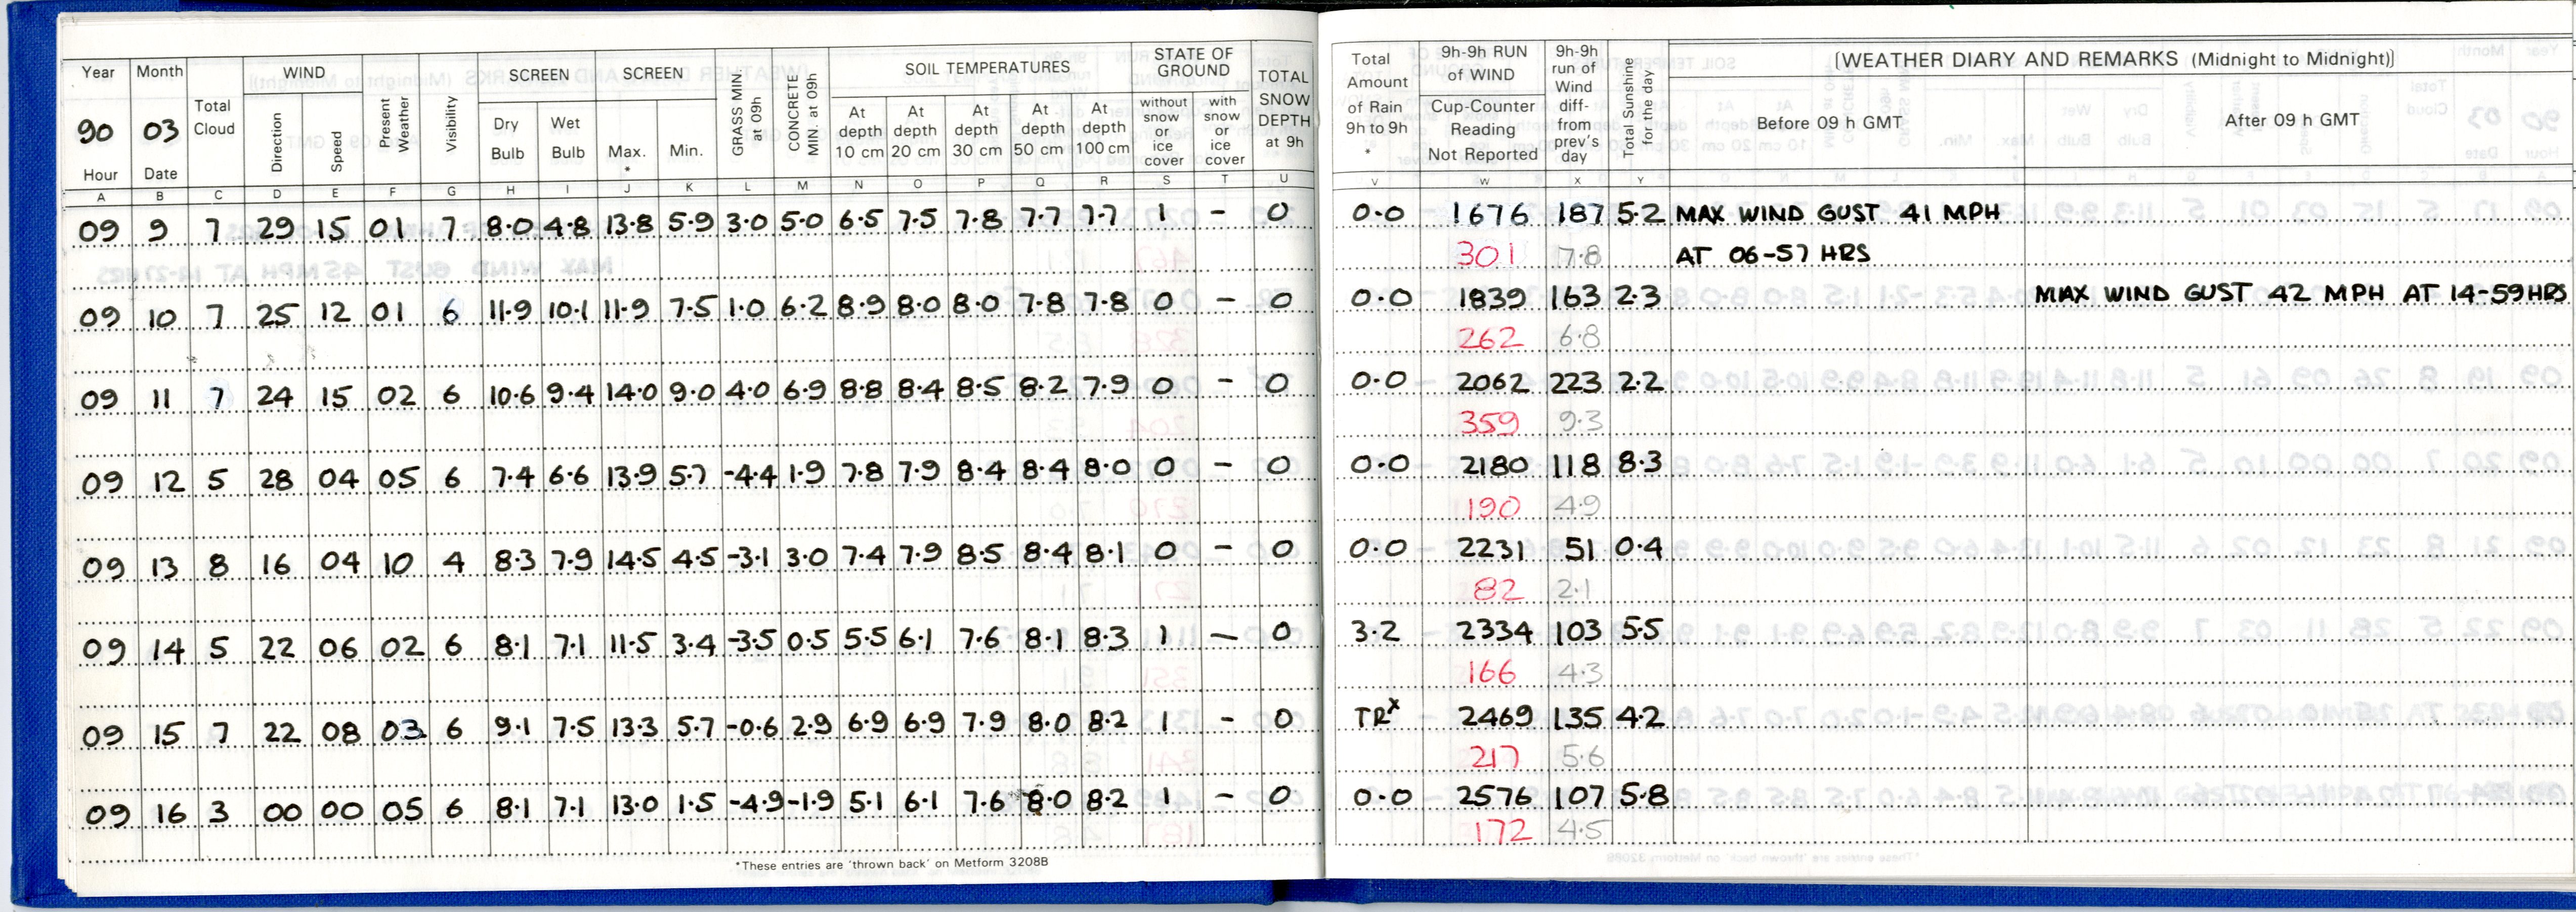 Year Month WIND SCREEN SCREEN SOIL TEMPERATURES STATE OF GROUND
90 03 Total Cloud Direction Speed Present Weather Visibility Dry Bulb Wet Bulb Max. * Min. GRASS MIN. at 09h CONCRETE MIN. at 09h At depth 10 cm At depth 20 cm At depth 30 cm At depth 50 cm At depth 100 cm without snow or ice cover with snow or ice cover TOTAL SNOW DEPTH at 9h
Hour Date
Total Amount of Rain 9h to 9h * 9h-9h RUN of WIND Cup-Counter Reading Not Reported 9h-9h run of Wind diff- from prev's day Total Sunshine for the day (WEATHER DIARY AND REMARKS (Midnight to Midnight))
Before 09 h GMT After 09 h GMT
A B C D E F G H I J K L M N O P Q R S T U V W X Y
09 9 7 29 15 01 7 8.0 4.8 13.8 5.9 3.0 5.0 6.5 7.5 7.8 7.7 7.7 1 - 0 0.0 1676 187 5.2 MAX WIND GUST 41 MPH
301 7.8 AT 06-57 HRS
09 10 7 25 12 01 6 11.9 10.1 11.9 7.5 1.0 6.2 8.9 8.0 8.0 7.8 7.8 0 - 0 0.0 1839 163 2.3 MAX WIND GUST 42 MPH AT 14-59 HRS
262 6.8
09 11 7 24 15 02 6 10.6 9.4 14.0 9.0 4.0 6.9 8.8 8.4 8.5 8.2 7.9 0 - 0 0.0 2062 223 2.2
359 9.3
09 12 5 28 04 05 6 7.4 6.6 13.9 5.7 -4.4 1.9 7.8 7.9 8.4 8.4 8.0 0 - 0 0.0 2180 118 8.3
190 4.9
09 13 8 16 04 10 4 8.3 7.9 14.5 4.5 -3.1 3.0 7.4 7.9 8.5 8.4 8.1 0 - 0 0.0 2231 51 0.4
82 2.1
09 14 5 22 06 02 6 8.1 7.1 11.5 3.4 -3.5 0.5 5.5 6.1 7.6 8.1 8.3 1 - 0 3.2 2334 103 5.5
166 4.3
09 15 7 22 08 03 6 9.1 7.5 13.3 5.7 -0.6 2.9 6.9 6.9 7.9 8.0 8.2 1 - 0 TRx 2469 135 4.2
217 5.6
09 16 3 00 00 05 6 8.1 7.1 13.0 1.5 -4.9 -1.9 5.1 6.1 7.6 8.0 8.2 1 - 0 0.0 2576 107 5.8
172 4.5
*These entries are 'thrown back' on Metform 3208B